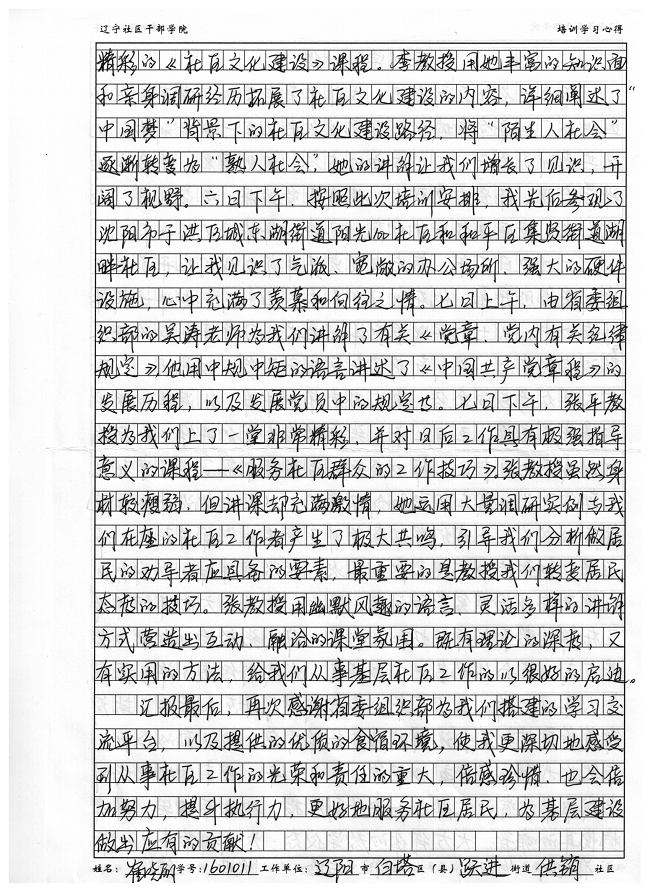 辽宁社区干部学院 培训学习心得
精彩的《社区文化建设》课程。李教授用她丰富的知识面
和亲身调研经历拓展了社区文化建设的内容，详细阐述了“
中国梦”背景下的社区文化建设路径，将“陌生人社会”
逐渐转变为“熟人社会”，她的讲解让我们增长了见识，开
阔了视野。六日下午，按照此次培训安排，我先后参观了
沈阳市于洪区城东湖街道阳光 社区和和平区集贤街道湖
畔社区，让我见识了气派、宽敞的办公场所、强大的硬件
设施，心中充满了羡慕和向往之情。七日上午，由省委组
织部的吴涛老师为我们讲解了有关《党章、党内有关纪律
规定》他用中规中矩的语言讲述了《中国共产党章程》的
发展历程，以及发展党员中的规定等。七日下午，张军教
授为我们上了一堂非常精彩，并对日后工作具有极强指导
意义的课程——《服务社区群众的工作技巧》张教授虽然身
材较瘦弱，但讲课却充满激情，她运用大量调研实例与我
们在座的社区工作者产生了极大共鸣，引导我们分析做居
民的劝导者应具备的要素，最重要的是教授我们转变居民
态度的技巧。张教授用幽默风趣的语言、灵活多样的讲解
方式营造出互动、融洽的课堂氛围。既有理论的深度，又
有实用的方法，给我们从事基层社区工作的以很好的启迪。
汇报最后，再次感谢省委组织部为我们搭建的学习交
流平台，以及提供的优质的食宿环境，使我更深切地感受
到从事社区工作的光荣和责任的重大，倍感珍惜，也会倍
加努力，提升执行力，更好地服务社区居民，为基层建设
做出应有的贡献！
姓名： 学号：1601011 工作单位：辽阳 市 白塔 区（县） 跃进 街道 供销 社区